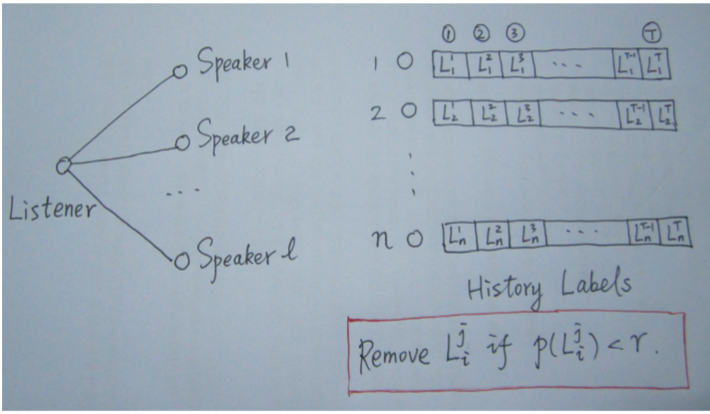 Speaker 1
Speaker 2
...
Listener
Speaker l
① ② ③ Ⓣ
1 L₁¹ L₁² L₁³ ... L₁ᵀ⁻¹ L₁ᵀ
2 L₂¹ L₂² L₂³ ... L₂ᵀ⁻¹ L₂ᵀ
⋮
n Lₙ¹ Lₙ² Lₙ³ ... Lₙᵀ⁻¹ Lₙᵀ
History Labels
Remove Lᵢʲ if p(Lᵢʲ) < r.